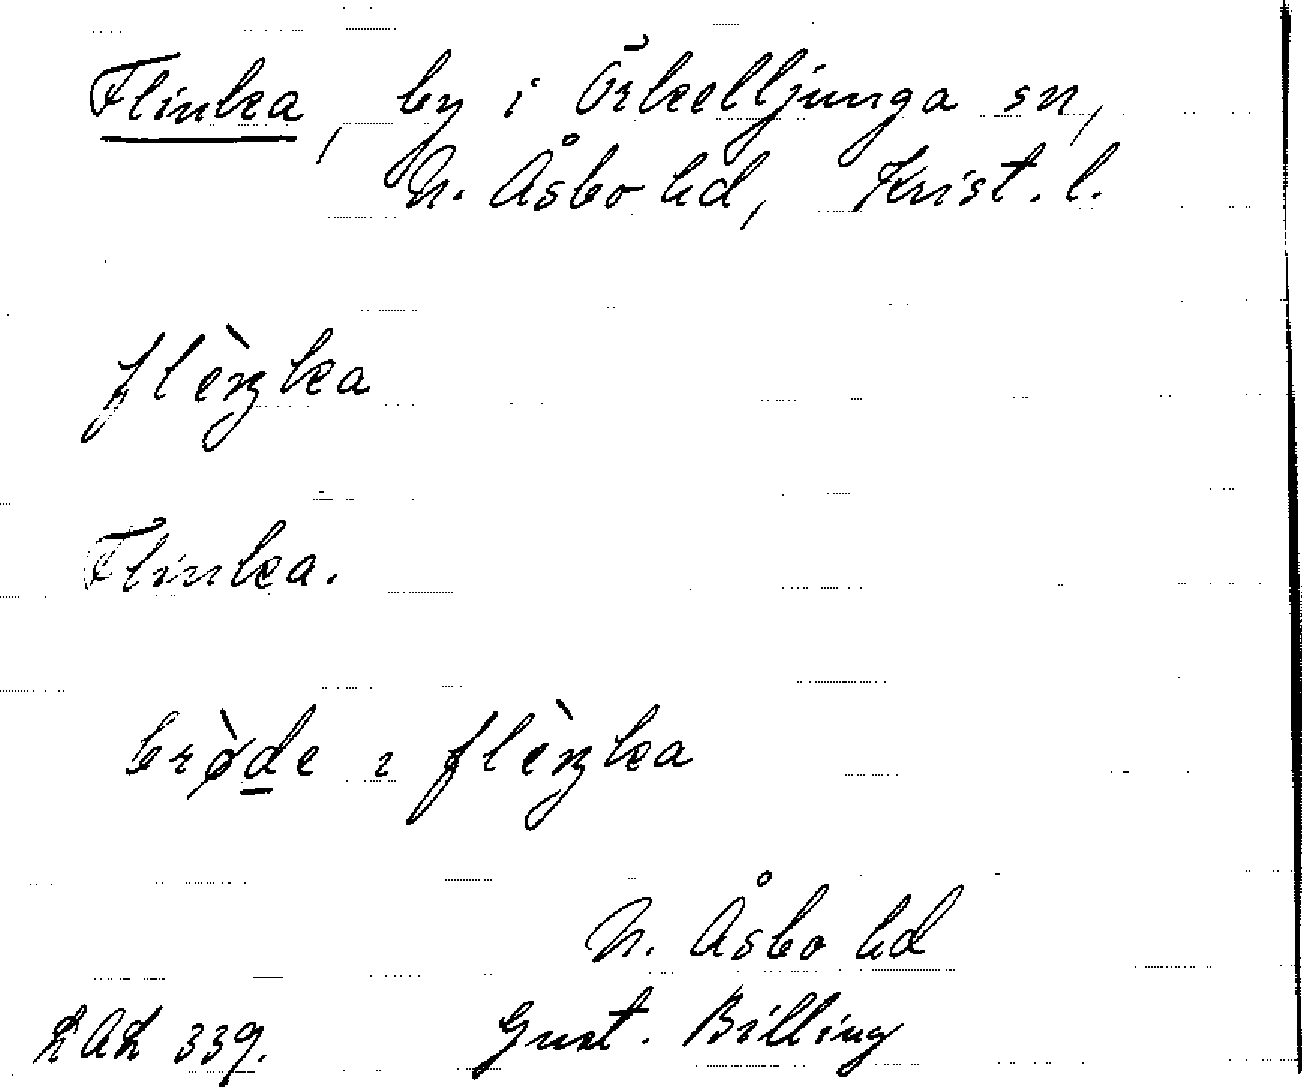 Flinka, by i Örkelljunga sn,
N. Åsbo hd, Krist. l.
flèŋka
Flinka.
brø̀de ı flèŋka
N. Åsbo hd
LAL 339. Gust. Billing